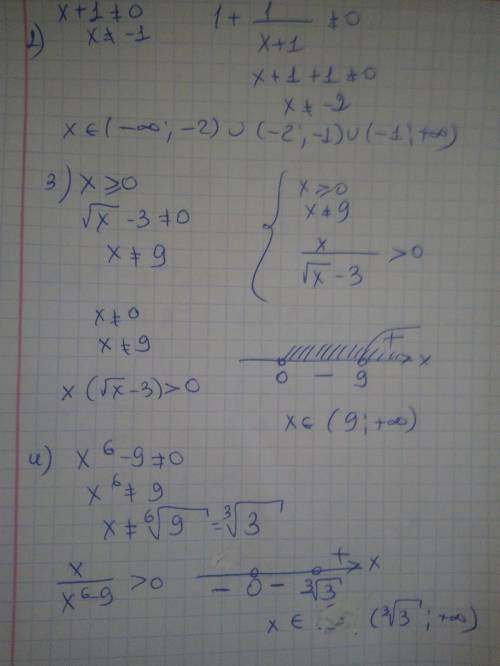 2) x+1≠0
x≠-1
1+ 1/(x+1) ≠0
x+1+1≠0
x≠-2
x∈(-∞;-2)∪(-2;-1)∪(-1;+∞)
3) x≥0
√x -3≠0
x≠9
{ x≥0
x≠9
x/(√x -3) >0
x≠0
x≠9
x(√x-3)>0
+ x
0 - 9
x∈(9;+∞)
4) x⁶-9≠0
x⁶≠9
x≠⁶√9 = ³√3
x/(x⁶-9) >0
+ x
- 0 - ³√3
x∈ (³√3;+∞)